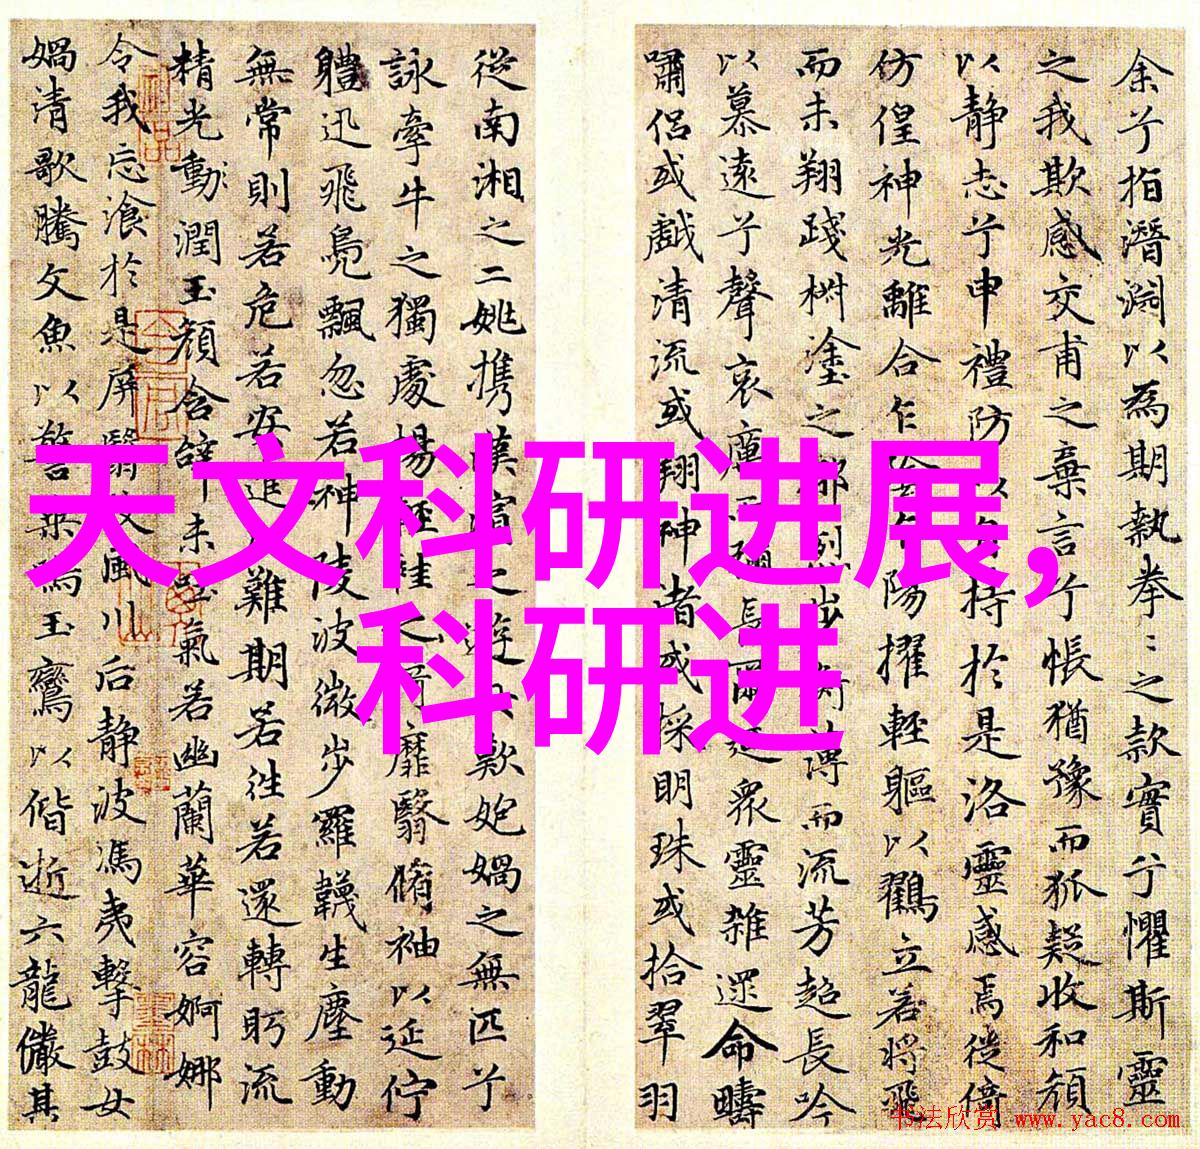 余兮指潛淵以為期執拳〻之款實兮懼斯靈
之我欺感交甫之棄言兮悵猶豫而狐疑收和顏
以静志兮申禮防以自持於是洛靈感焉徙倚
仿偟神光離合乍陰乍陽擢輕軀以鶴立若將飛
而未翔踐椒塗之郁烈步蘅薄而流芳超長吟
以慕遠兮聲哀厲而彌長爾迺眾靈雜遝命疇
嘯侶或戲清流或翔神渚或採明珠或拾翠羽
從南湘之二姚携漢濱之遊女歎匏媧之無匹兮
詠牽牛之獨處揚輕袿之猗靡翳脩袖以延佇
體迅飛鳧飄忽若神陵波微步羅韈生塵動
無常則若危若安進止難期若往若還轉眄流
精光動潤玉顏含辭未吐氣若幽蘭華容婀娜
令我忘飡於是屏翳收風川后静波馮夷擊鼓女
媧清歌騰文魚以警乘鳴玉鸞以偕逝六龍儼其
天文科研进展，
科研进
书法欣赏 www.yac8.com